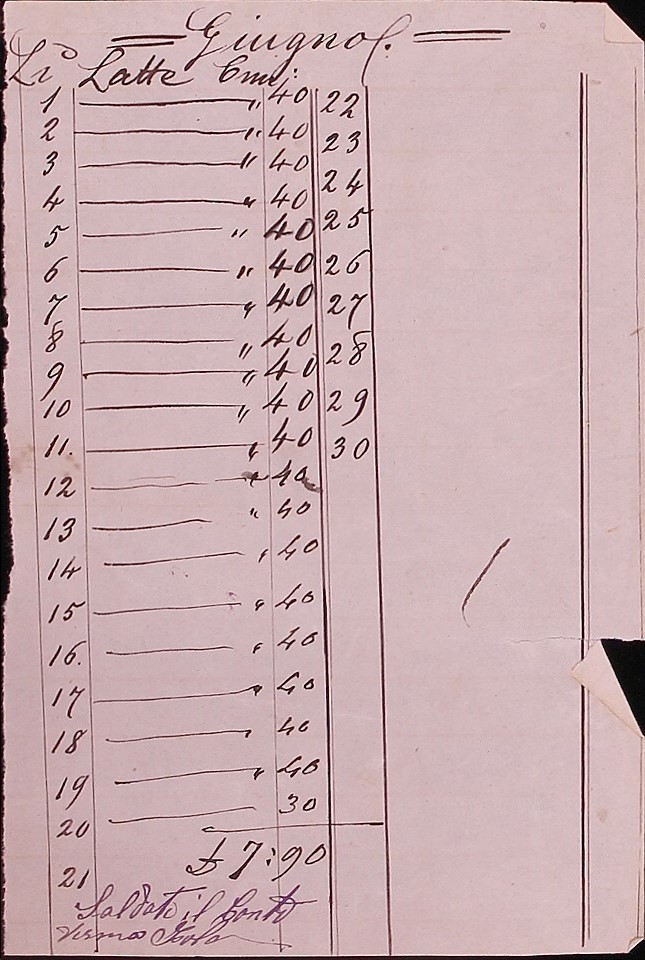 Giugno
Li Latte Cmi:
1 " 40 22
2 " 40 23
3 " 40 24
4 " 40 25
5 " 40 26
6 " 40 27
7 " 40 28
8 " 40 29
9 " 40 30
10 " 40
11. " 40
12 " 40
13 " 40
14 " 40
15 " 40
16. " 40
17 " 40
18 " 40
19 " 40
20 30
21 £ 7:90
Saldato il Conto